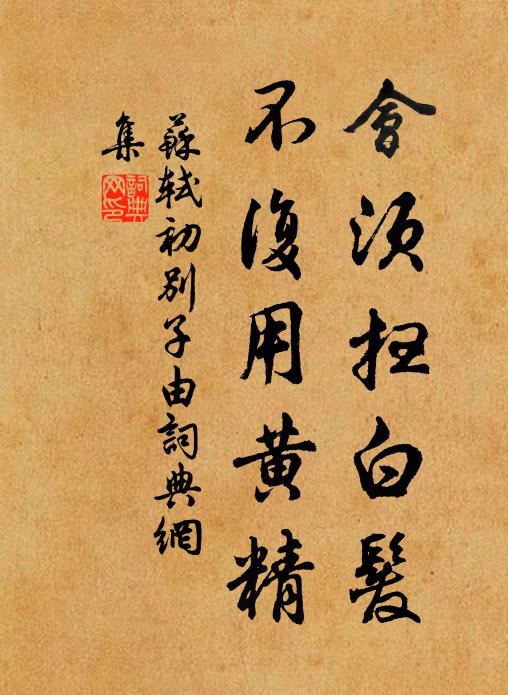 會須掃白髮
不復用黄精
蘇軾初別子由詞典網
集
詞典
网印